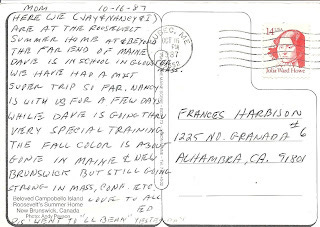 MOM 10-16-87
HERE WE (JAY & NANCY & I
ARE AT THE ROOSEVELT
SUMMER HOME AT & BEYOND
THE FAR END OF MAINE
DAVE IS IN SCHOOL IN GLOUSTER
MASS.
WE HAVE HAD A MOST
SUPER TRIP SO FAR. NANCY
IS WITH US FOR A FEW DAYS
WHILE DAVE IS GOING THRU
VERY SPECIAL TRAINING.
THE FALL COLOR IS ABOUT
GONE IN MAINE & NEW
BRUNSWICK BUT STILL GOING
STRONG IN MASS, CONN. ETC.
LOVE TO ALL
TED
WENT TO "LL BEAN" YESTERDAY
Beloved Campobello Island
Roosevelt's Summer Home
New Brunswick, Canada
Photo: Andy
ME
OCT 16
PM
1987
14 USA
Julia Ward Howe
FRANCES HARBISON
1225 NO. GRANADA #6
ALHAMBRA, CA. 91801